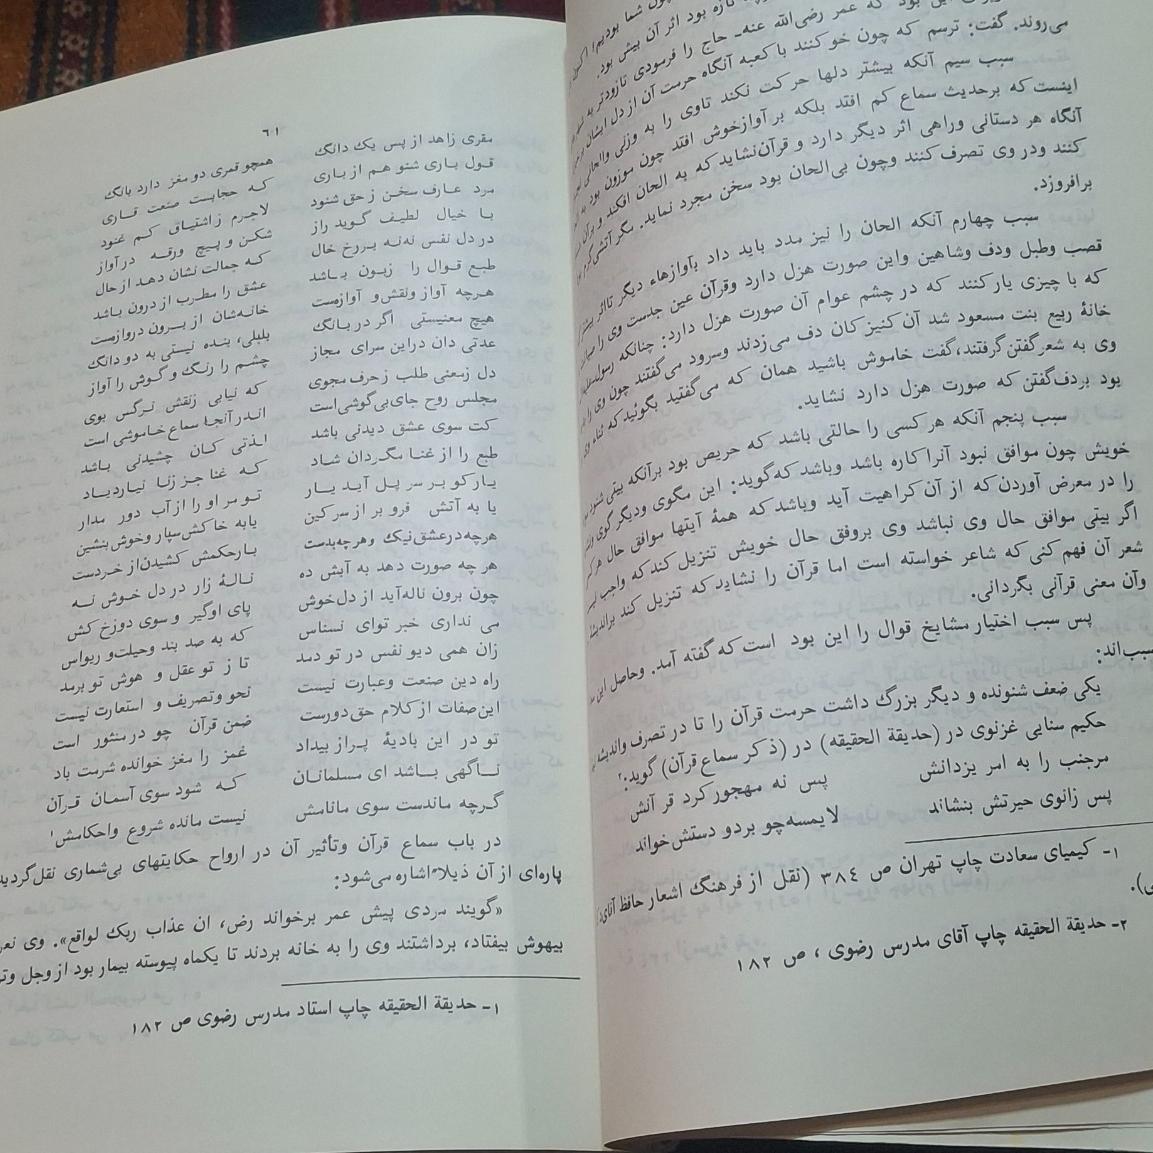 چون شما بودیم! اکنون
این بود که عمر رضی‌الله عنه- حاج را فرمودی تازودتر به
می‌روند. گفت: ترسم که چون خو کنند با کعبه آنگاه حرمت آن از دل ایشان
سبب سیم آنکه بیشتر دلها حرکت نکند تاوی را به وزنی والحانی
اینست که برحدیث سماع کم افتد بلکه بر آوازخوش افتد چون موزون بود
آنگاه هر دستانی وراهی اثر دیگر دارد و قرآن‌نشاید که به الحان افکند و
کنند ودر وی تصرف کنند وچون بی‌الحان بود سخن مجرد نماید. مگر آتشی گرم
برافروزد.
سبب چهارم آنکه الحان را نیز مدد باید داد بآوازهاء دیگر تااثر بیشتر
قصب وطبل ودف وشاهین واین صورت هزل دارد وقرآن عین جدست وی را
که با چیزی یار کنند که در چشم عوام آن صورت هزل دارد: چنانکه رسول
خانهٔ ربیع بنت مسعود شد آن کنیزکان دف می‌زدند وسرود می‌گفتند چون وی را
وی به شعر گفتن گرفتند، گفت خاموش باشید همان که می‌گفتید بگوئید که ثناء
بود بردف گفتن که صورت هزل دارد نشاید.
سبب پنجم آنکه هر کسی را حالتی باشد که حریص بود برآنکه بیتی شنود
خویش چون موافق نبود آنرا کاره باشد وباشد که گوید: این مگوی ودیگر گوی
را در معرض آوردن که از آن کراهیت آید وباشد که همهٔ آیتها موافق حال هر کس
اگر بیتی موافق حال وی نباشد وی بروفق حال خویش تنزیل کند که واجب
شعر آن فهم کنی که شاعر خواسته است اما قرآن را نشاید که تنزیل کند براندیشهٔ
وآن معنی قرآنی بگردانی.
پس سبب اختیار مشایخ قوال را این بود است که گفته آمد. وحاصل این
سبب‌اند:
یکی ضعف شنونده و دیگر بزرگ داشت حرمت قرآن را تا در تصرف واندیشه
حکیم سنایی غزنوی در (حدیقة الحقیقه) در (ذکر سماع قرآن) گوید:۲
مرجنب را به امر یزدانش پس نه مهجور کرد قر آنش
پس زانوی حیرتش بنشاند لایمسه‌چو بردو دستش‌خواند
۱- کیمیای سعادت چاپ تهران ص ۳۸٤ (نقل از فرهنگ اشعار حافظ آقای
۲- حدیقة الحقیقه چاپ آقای مدرس رضوی ، ص ۱۸۲
٦۱
مقری زاهد از پس یک دانگ همچو قمری دو مغز دارد بانگ
قول باری شنو هم از باری که حجابست صنعت قاری
مرد عارف سخن ز حق شنود لاجرم ز اشتیاق کم غنود
با خیال لطیف گوید راز شکن و پیچ ورقه در آواز
در دل نفس نه‌نه بر رخ خال که جمالت نشان دهد از حال
طبع قوال را زبون باشد عشق را مطرب از درون باشد
هرچه آواز ونقش و آوازست خانه‌شان از برون دروازست
هیچ معنیستی اگر در بانگ بلبلی، بنده نیستی به دو دانگ
عدتی دان دراین سرای مجاز چشم را رنگ و گوش را آواز
دل زمعنی طلب زحرف مجوی که نیابی زنقش نرگس بوی
مجلس روح جای بی‌گوشی است اندر آنجا سماع خاموشی است
کت سوی عشق دیدنی باشد لذتی کان چشیدنی باشد
طبع را از غنا مگردان شاد که غنا جز زنا نیارد یاد
یار کو بر سر پل آید یار تو مر او را از آب دور مدار
یا به آتش فرو بر از سر کین یابه خاکش سپار وخوش بنشین
هرچه درعشق نیک وهرچه بدست بارحکمش کشیدن از خردست
هر چه صورت دهد به آبش ده نالهٔ زار در دل خوش نه
چون برون ناله‌آید از دل‌خوش پای اوگیر و سوی دوزخ کش
می نداری خبر توای نسناس که به صد بند وحیلت و ریواس
زان همی دیو نفس در تو دمد تا ز تو عقل و هوش تو برمد
راه دین صنعت وعبارت نیست نحو وتصریف و استعارت نیست
این صفات از کلام حق دورست ضمن قرآن چو در منثور است
تو در این بادیهٔ پر از بیداد غمز را مغز خوانده شرمت باد
ناگهی باشد ای مسلمانان که شود سوی آسمان قرآن
گرچه ماندست سوی مانامش نیست مانده شروع واحکامش۱
در باب سماع قرآن وتأثیر آن در ارواح حکایتهای بی‌شماری نقل‌گردید
پاره‌ای از آن ذیلاً اشاره می‌شود:
«گویند مردی پیش عمر برخواند رض، ان عذاب ربک لواقع». وی
بیهوش بیفتاد، برداشتند وی را به خانه بردند تا یکماه پیوسته بیمار بود از وجل
۱- حدیقة الحقیقه چاپ استاد مدرس رضوی ص ۱۸۲